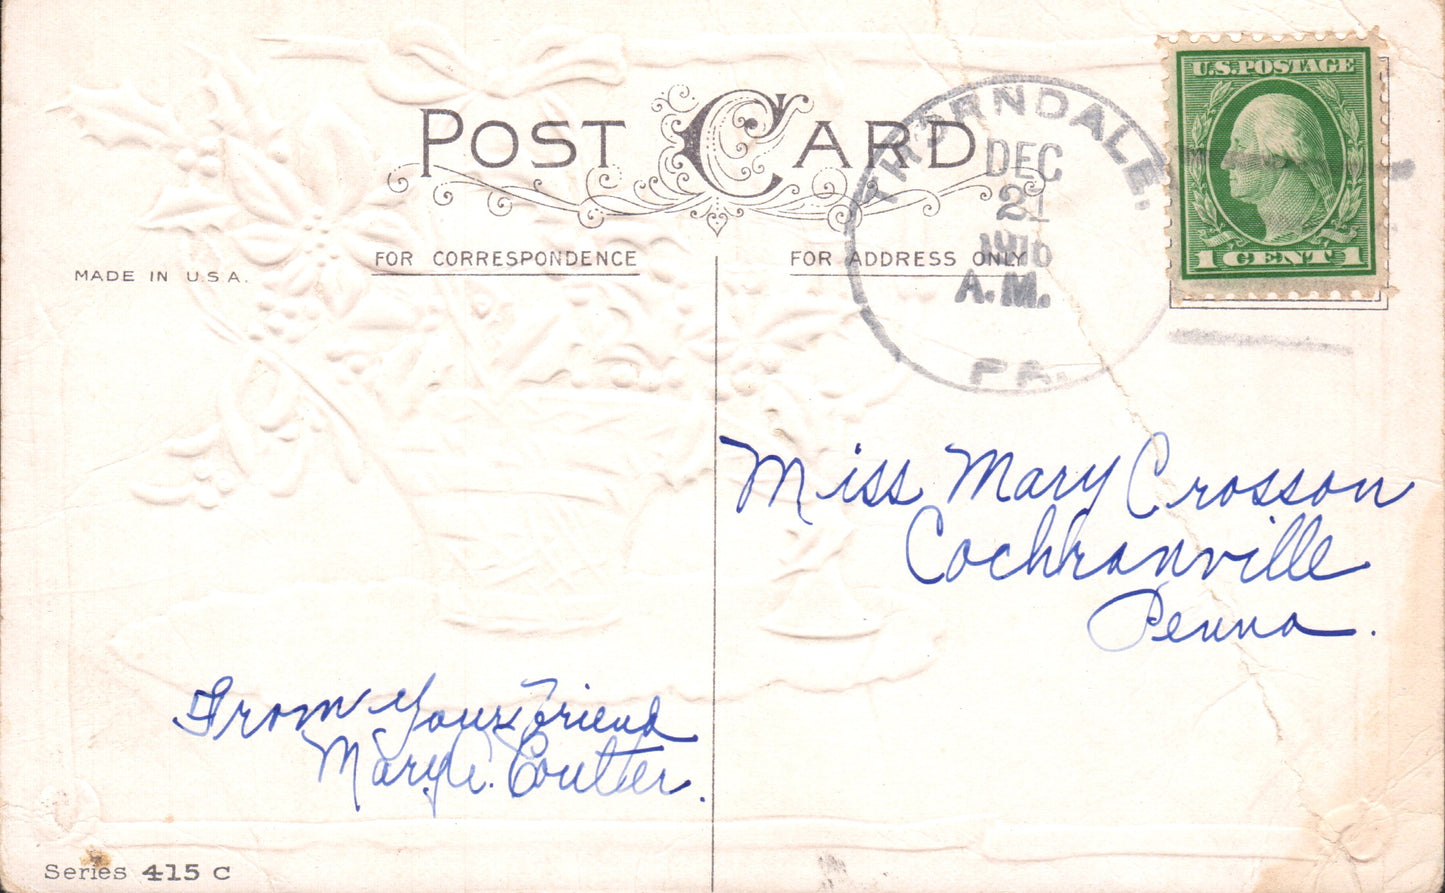 POST CARD
THORNDALE,
DEC
21
1916
A.M.
PA.
U.S. POSTAGE
1 CENT 1
MADE IN U.S.A.
FOR CORRESPONDENCE
FOR ADDRESS ONLY
Miss Mary Crosson
Cochranville
Penna.
From Your Friend
Mary C. Coulter.
Series 415 C